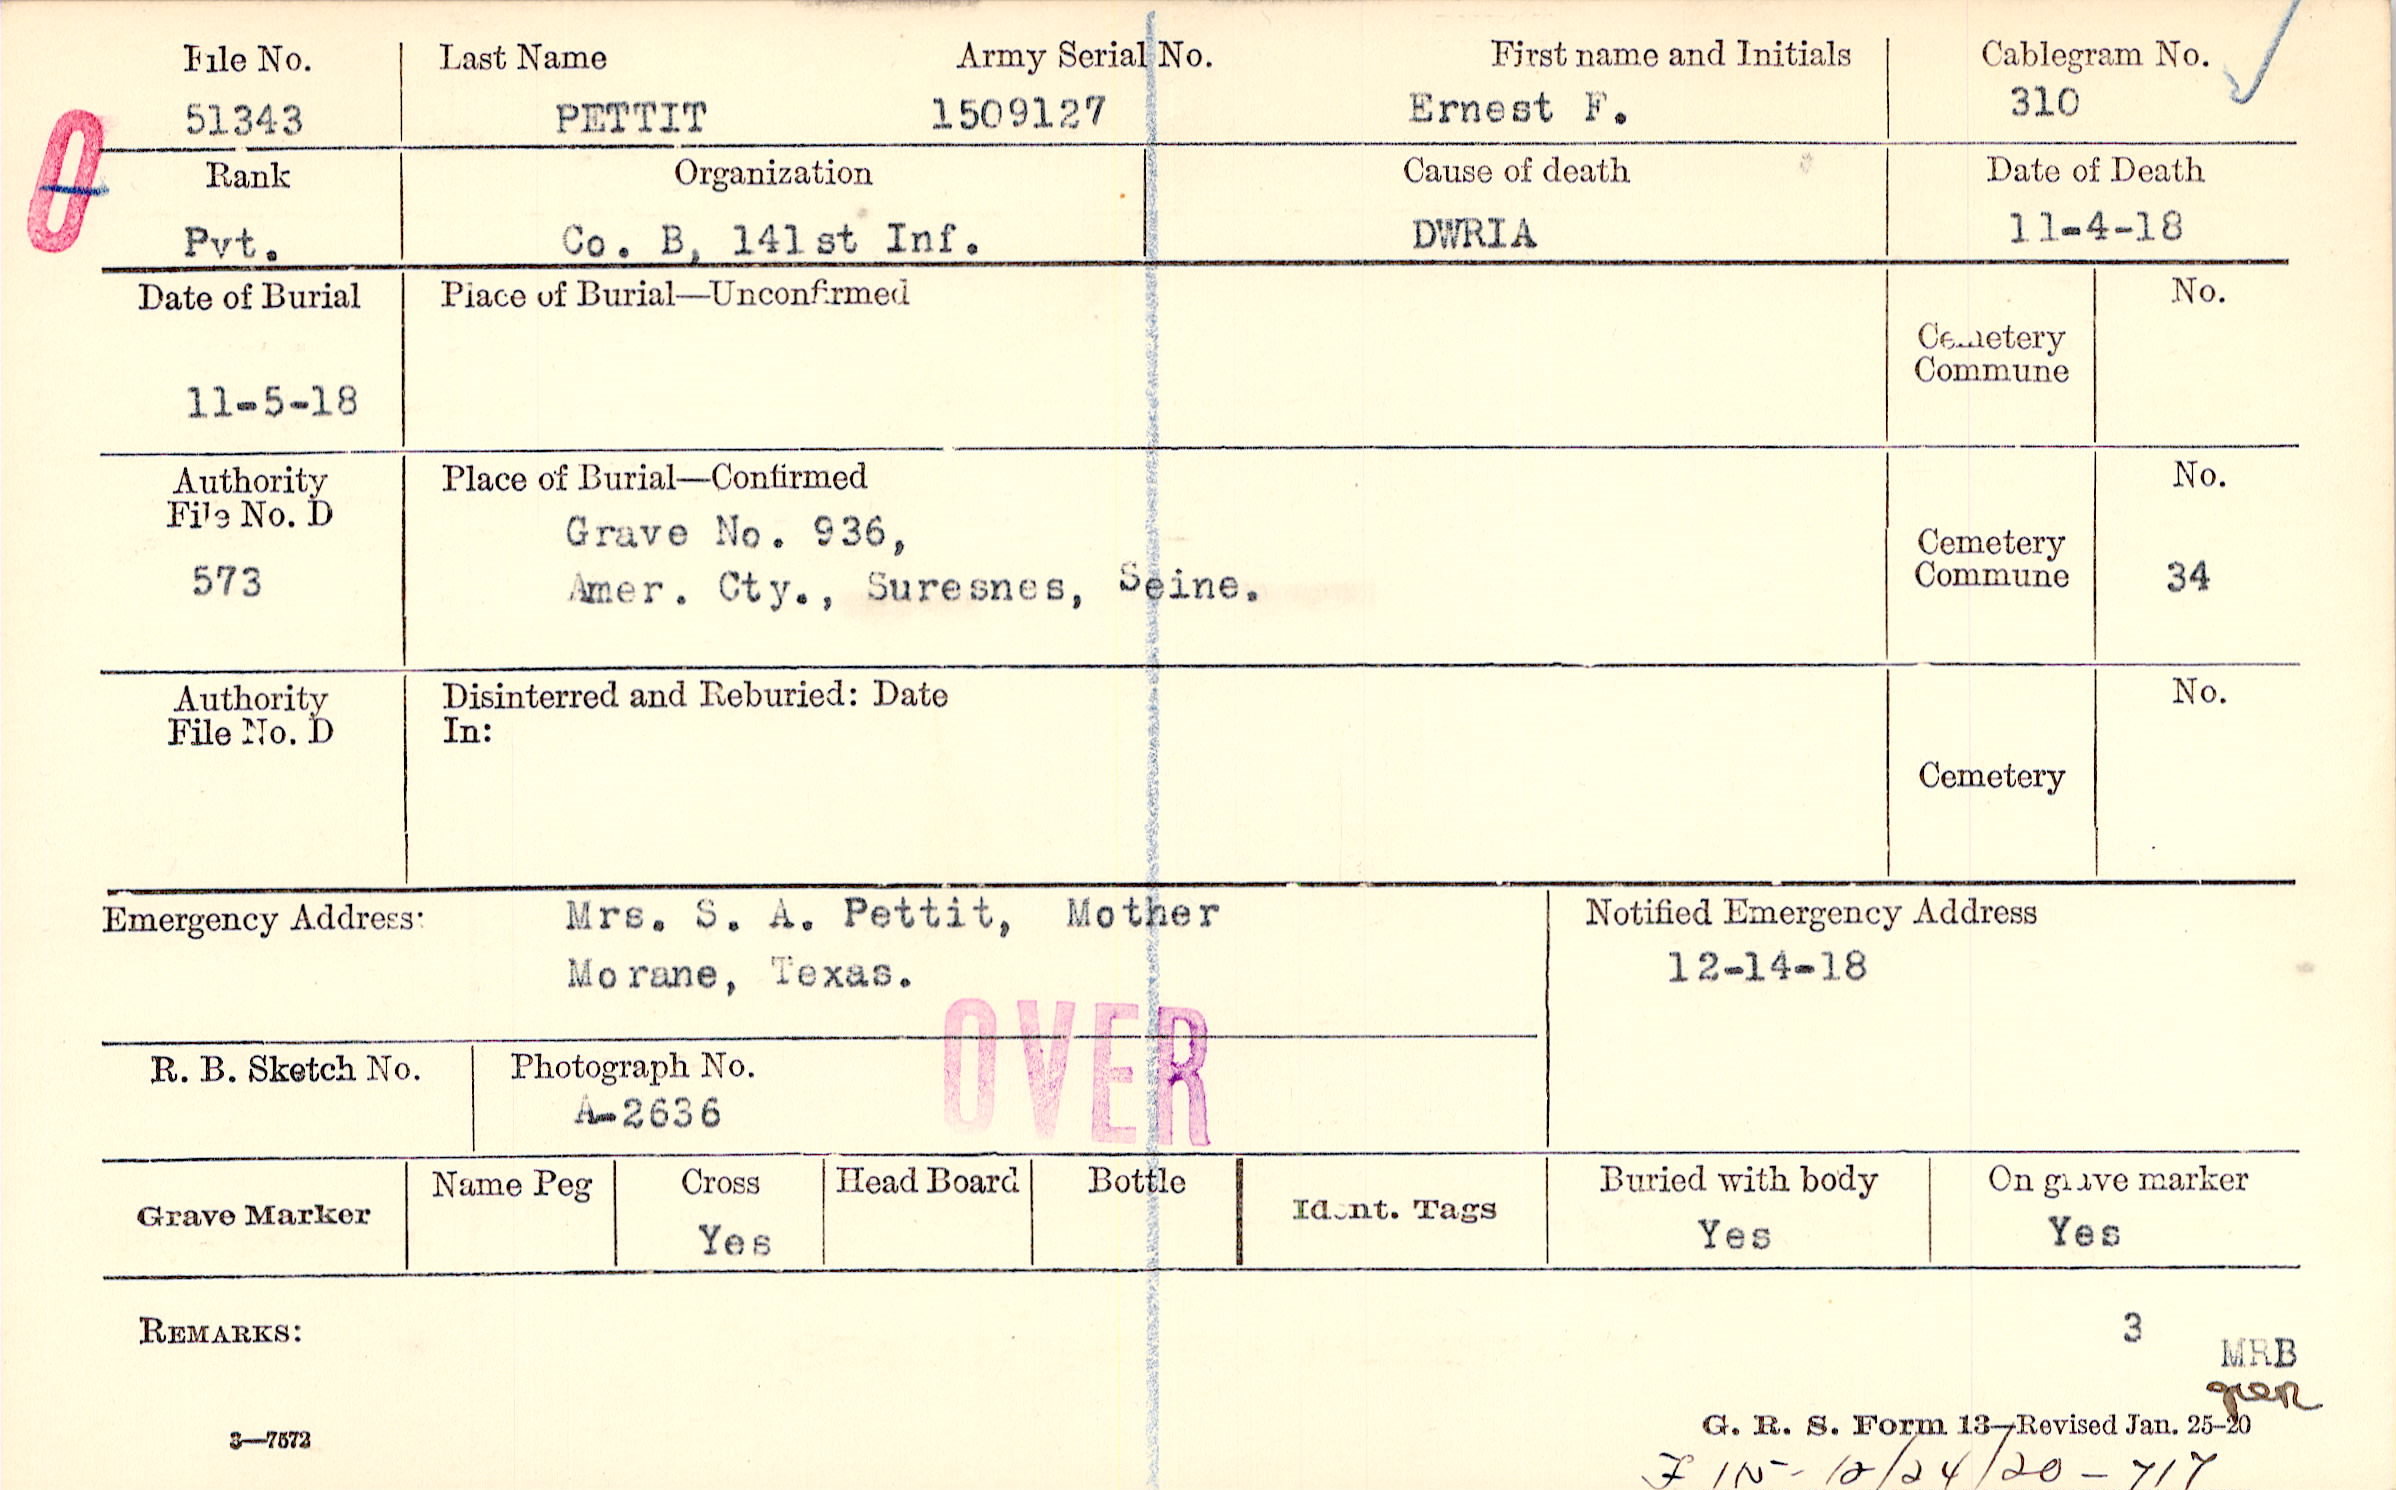 File No. Last Name Army Serial No. First name and Initials Cablegram No.
51343 PETTIT 1509127 Ernest F. 310
O
Rank Organization Cause of death Date of Death
Pvt. Co. B, 141st Inf. DWRIA 11-4-18
Date of Burial Place of Burial—Unconfirmed No.
Cemetery
Commune
11-5-18
Authority Place of Burial—Confirmed No.
File No. D
Grave No. 936,
Cemetery
Commune 34
573 Amer. Cty., Suresnes, Seine.
Authority Disinterred and Reburied: Date No.
File No. D In:
Cemetery
Emergency Address: Mrs. S. A. Pettit, Mother Notified Emergency Address
Morane, Texas. 12-14-18
OVER
R. B. Sketch No. Photograph No.
A-2636
Grave Marker Name Peg Cross Head Board Bottle Ident. Tags Buried with body On grave marker
Yes Yes Yes
REMARKS: 3
MRB
3—7572 G. R. S. Form 13—Revised Jan. 25-20
12/24/20 - 717